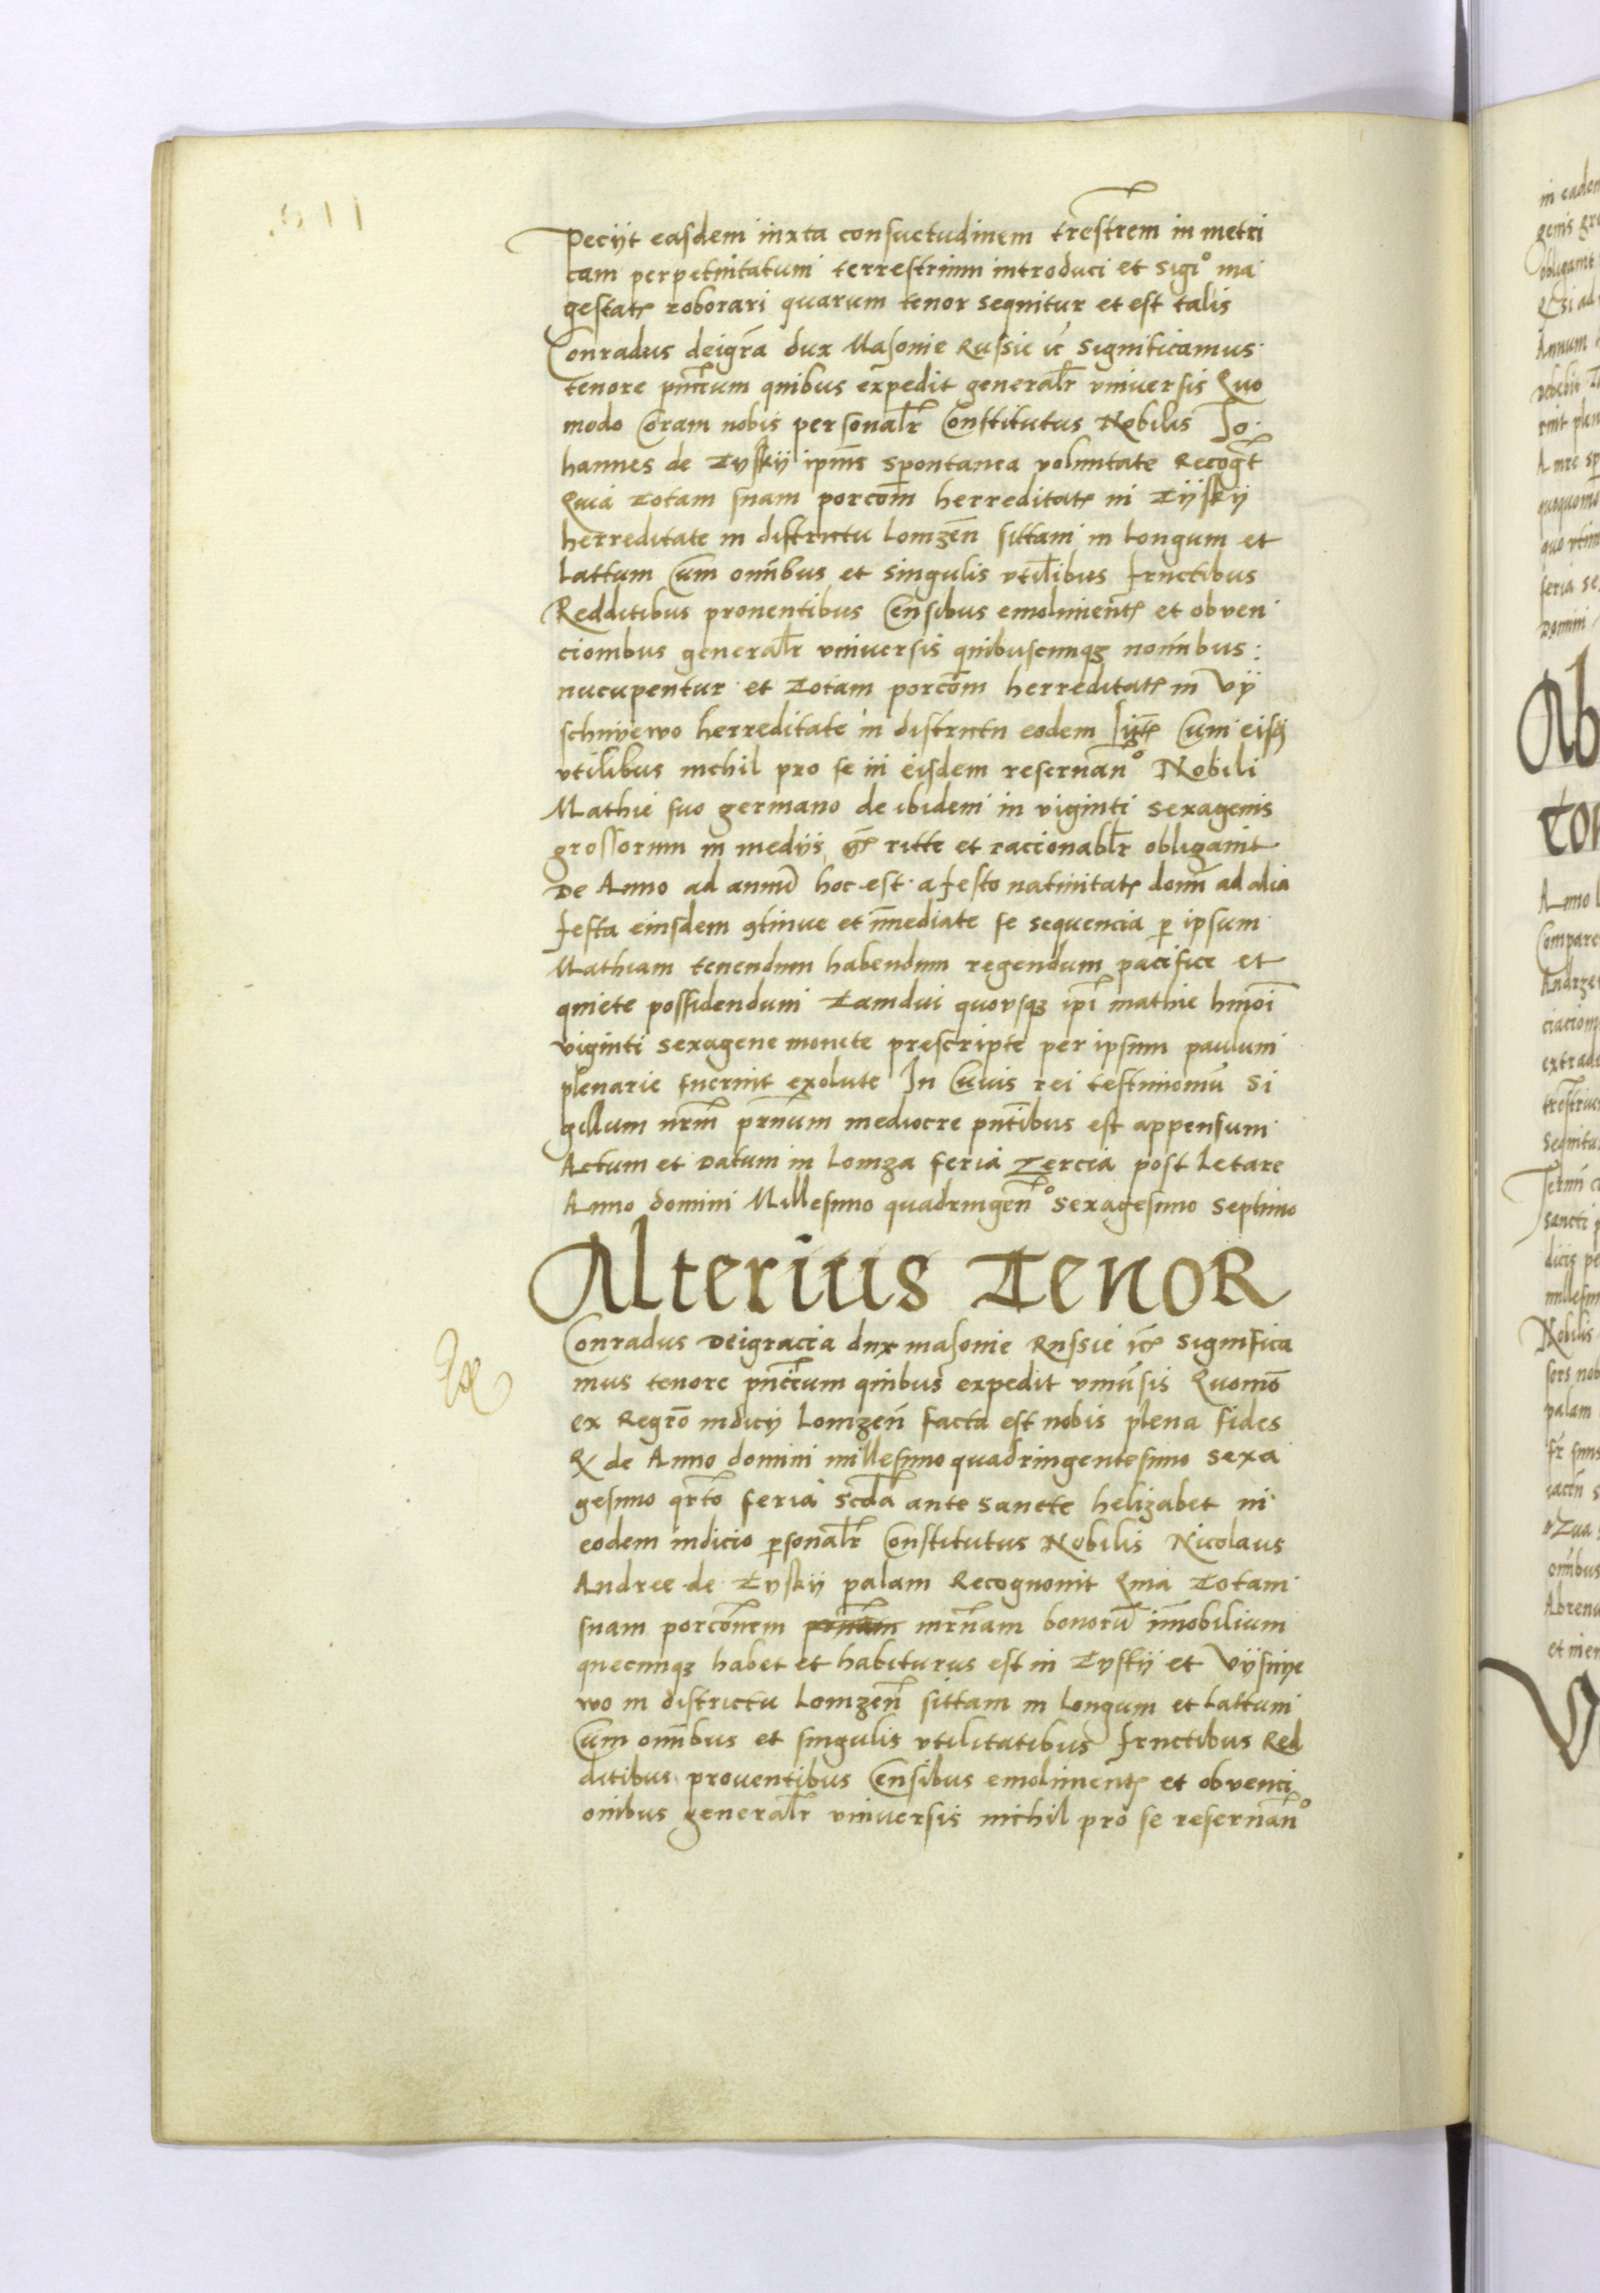 peciit easdem iuxta consuetudinem trestrem in metri
cam perpetuitatum terrestrium introduci et sigio ma
gestate roborari quarum tenor sequitur et est talis
Conradus dei gra dux Masouie Russie ic significamus
tenore pncium quibus expedit generalr vniuersis Quo
modo Coram nobis personalr Constitutus Nobilis Jo
hannes de Tyskij spontanea voluntate Recogt
Quia Totam suam porcom herreditate in Tijskij
herreditate in districtu Lomzen sittam in Longum et
Lattum Cum omibus et singulis vtilibus fructibus
Redditibus prouentibus Censibus emolument et obuen
cionibus generalr vniuersis quibuscunq nomibus
nucupentur et Totam porcom herreditate in Vij
schnyewo herreditate in districtu eodem Cum eisq
vtilibus nichil pro se in eisdem reseruano Nobili
Mathie suo germano de ibidem in viginti sexagenis
grossorum in medijs ritte et racionablr obligauit
De Anno ad annu hoc est a festo natiuitate domi ad alia
festa eiusdem gtinue et imediate se sequencia p ipsum
Mathiam tenendum habendum regendum pacifice et
quiete possidendum Tamdui quousq ipi mathie hmoi
viginti sexagene monete prescripte per ipsum paulum
plenarie fuerint exolute In Cuius rei testimoniu Si
gillum nrm mediocre pntibus est appensum
Actum et Datum in Lomza feria Tercia post Letare
Anno domini Millesimo quadringeno Sexagesimo Septimo
Alterius Tenor
Conradus Dei gracia dux masouie Russie ic Significa
mus tenore pncium quibus expedit vniusis Quomo
ex Regro iudicij Lomzen facta est nobis plena fides
Q de Anno domini millesimo quadringentesimo Sexa
gesimo qrto feria scda ante sancte helizabet in
eodem iudicio psonalr Constitutus Nobilis Nicolaus
Andree de Tyskij palam Recognouit Quia Totam
suam porcionem mrnam bonoru imobilium
quecunq habet et habiturus est in Tyskij et Vijsnye
wo in districtu Lomzen sittam in Longum et Lattum
Cum omibus et singulis vtilitatibus fructibus Red
ditibus prouentibus Censibus emolument et obuenci
onibus generalr vniuersis nichil pro se reseruano